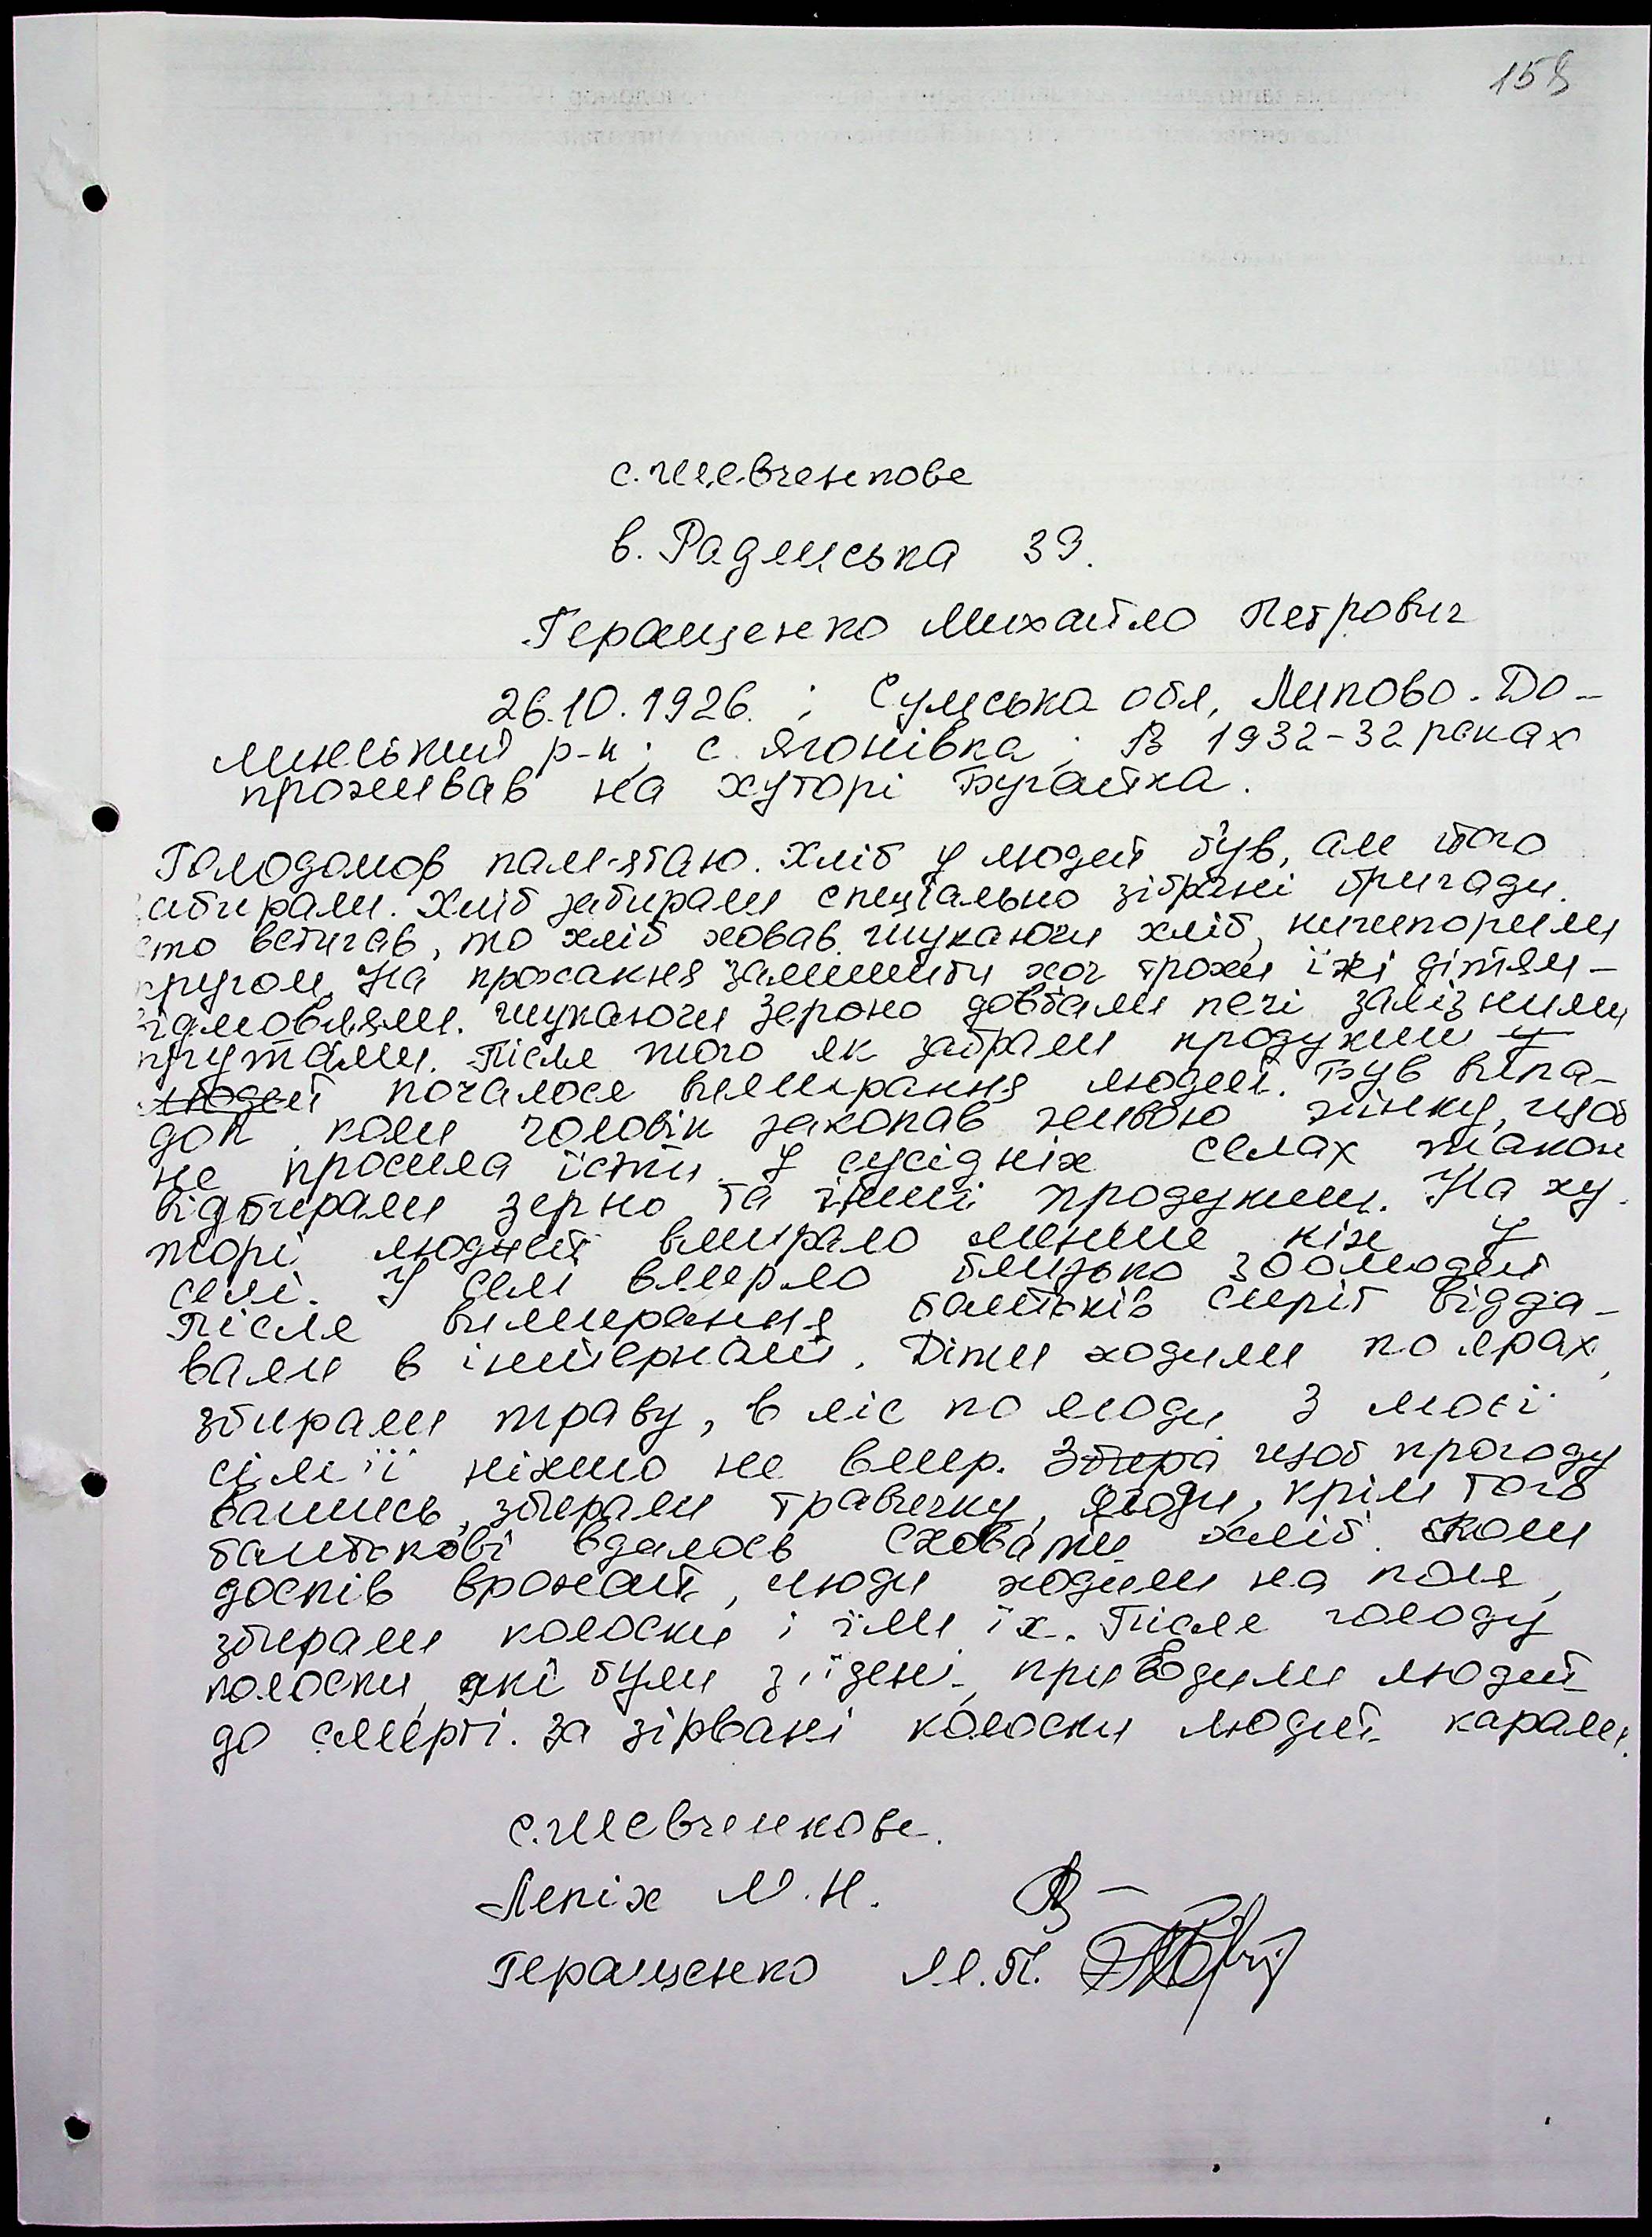 158
с. Шевченкове
в. Радянська 39.
Геращенко Михайло Петрович
26.10.1926. ; Сумська обл, Липово-До-
линський р-н; с. Ягонівка; В 1932-32 роках
проживав на хуторі Бугайка.
Голодомор пам'ятаю. Хліб у людей був, але його
абирали. Хліб забирали спеціально зібрані бригади.
то встигав, то хліб ховав. Шукаючи хліб, ничипорили
кругом. На прохання залишити хоч трохи їжі дітям -
ідмовляли. Шукаючи зерно довбали печі залізними
прутами. Після того як забрали продукти у
людей почалося вимирання людей. Був випа-
док, коли чоловік закопав живою жінку, щоб
не просила їсти. У сусідніх селах також
відбирали зерно та інші продукти. На ху-
торі людей вмирало менше ніж у
селі. У селі вмерло близько 300 людей
Після вимирання батьків сиріт відда-
вали в інтернат. Діти ходили по ярах,
збирали траву, в ліс по ягоди. З моєї
сім'ї ніхто не вмер. Збира щоб прогоду
вались, збирали травичку, ягоди, крім того
батькові вдалось сховати хліб. Коли
доспів врожай, люди ходили на поля,
збирали колоски і їли їх. Після голоду
колоски, які були з'їдені, приводили людей
до смерті. За зірвані колоски людей карали.
с. Шевченкове.
Лепіх М. Н.
Геращенко М. П.